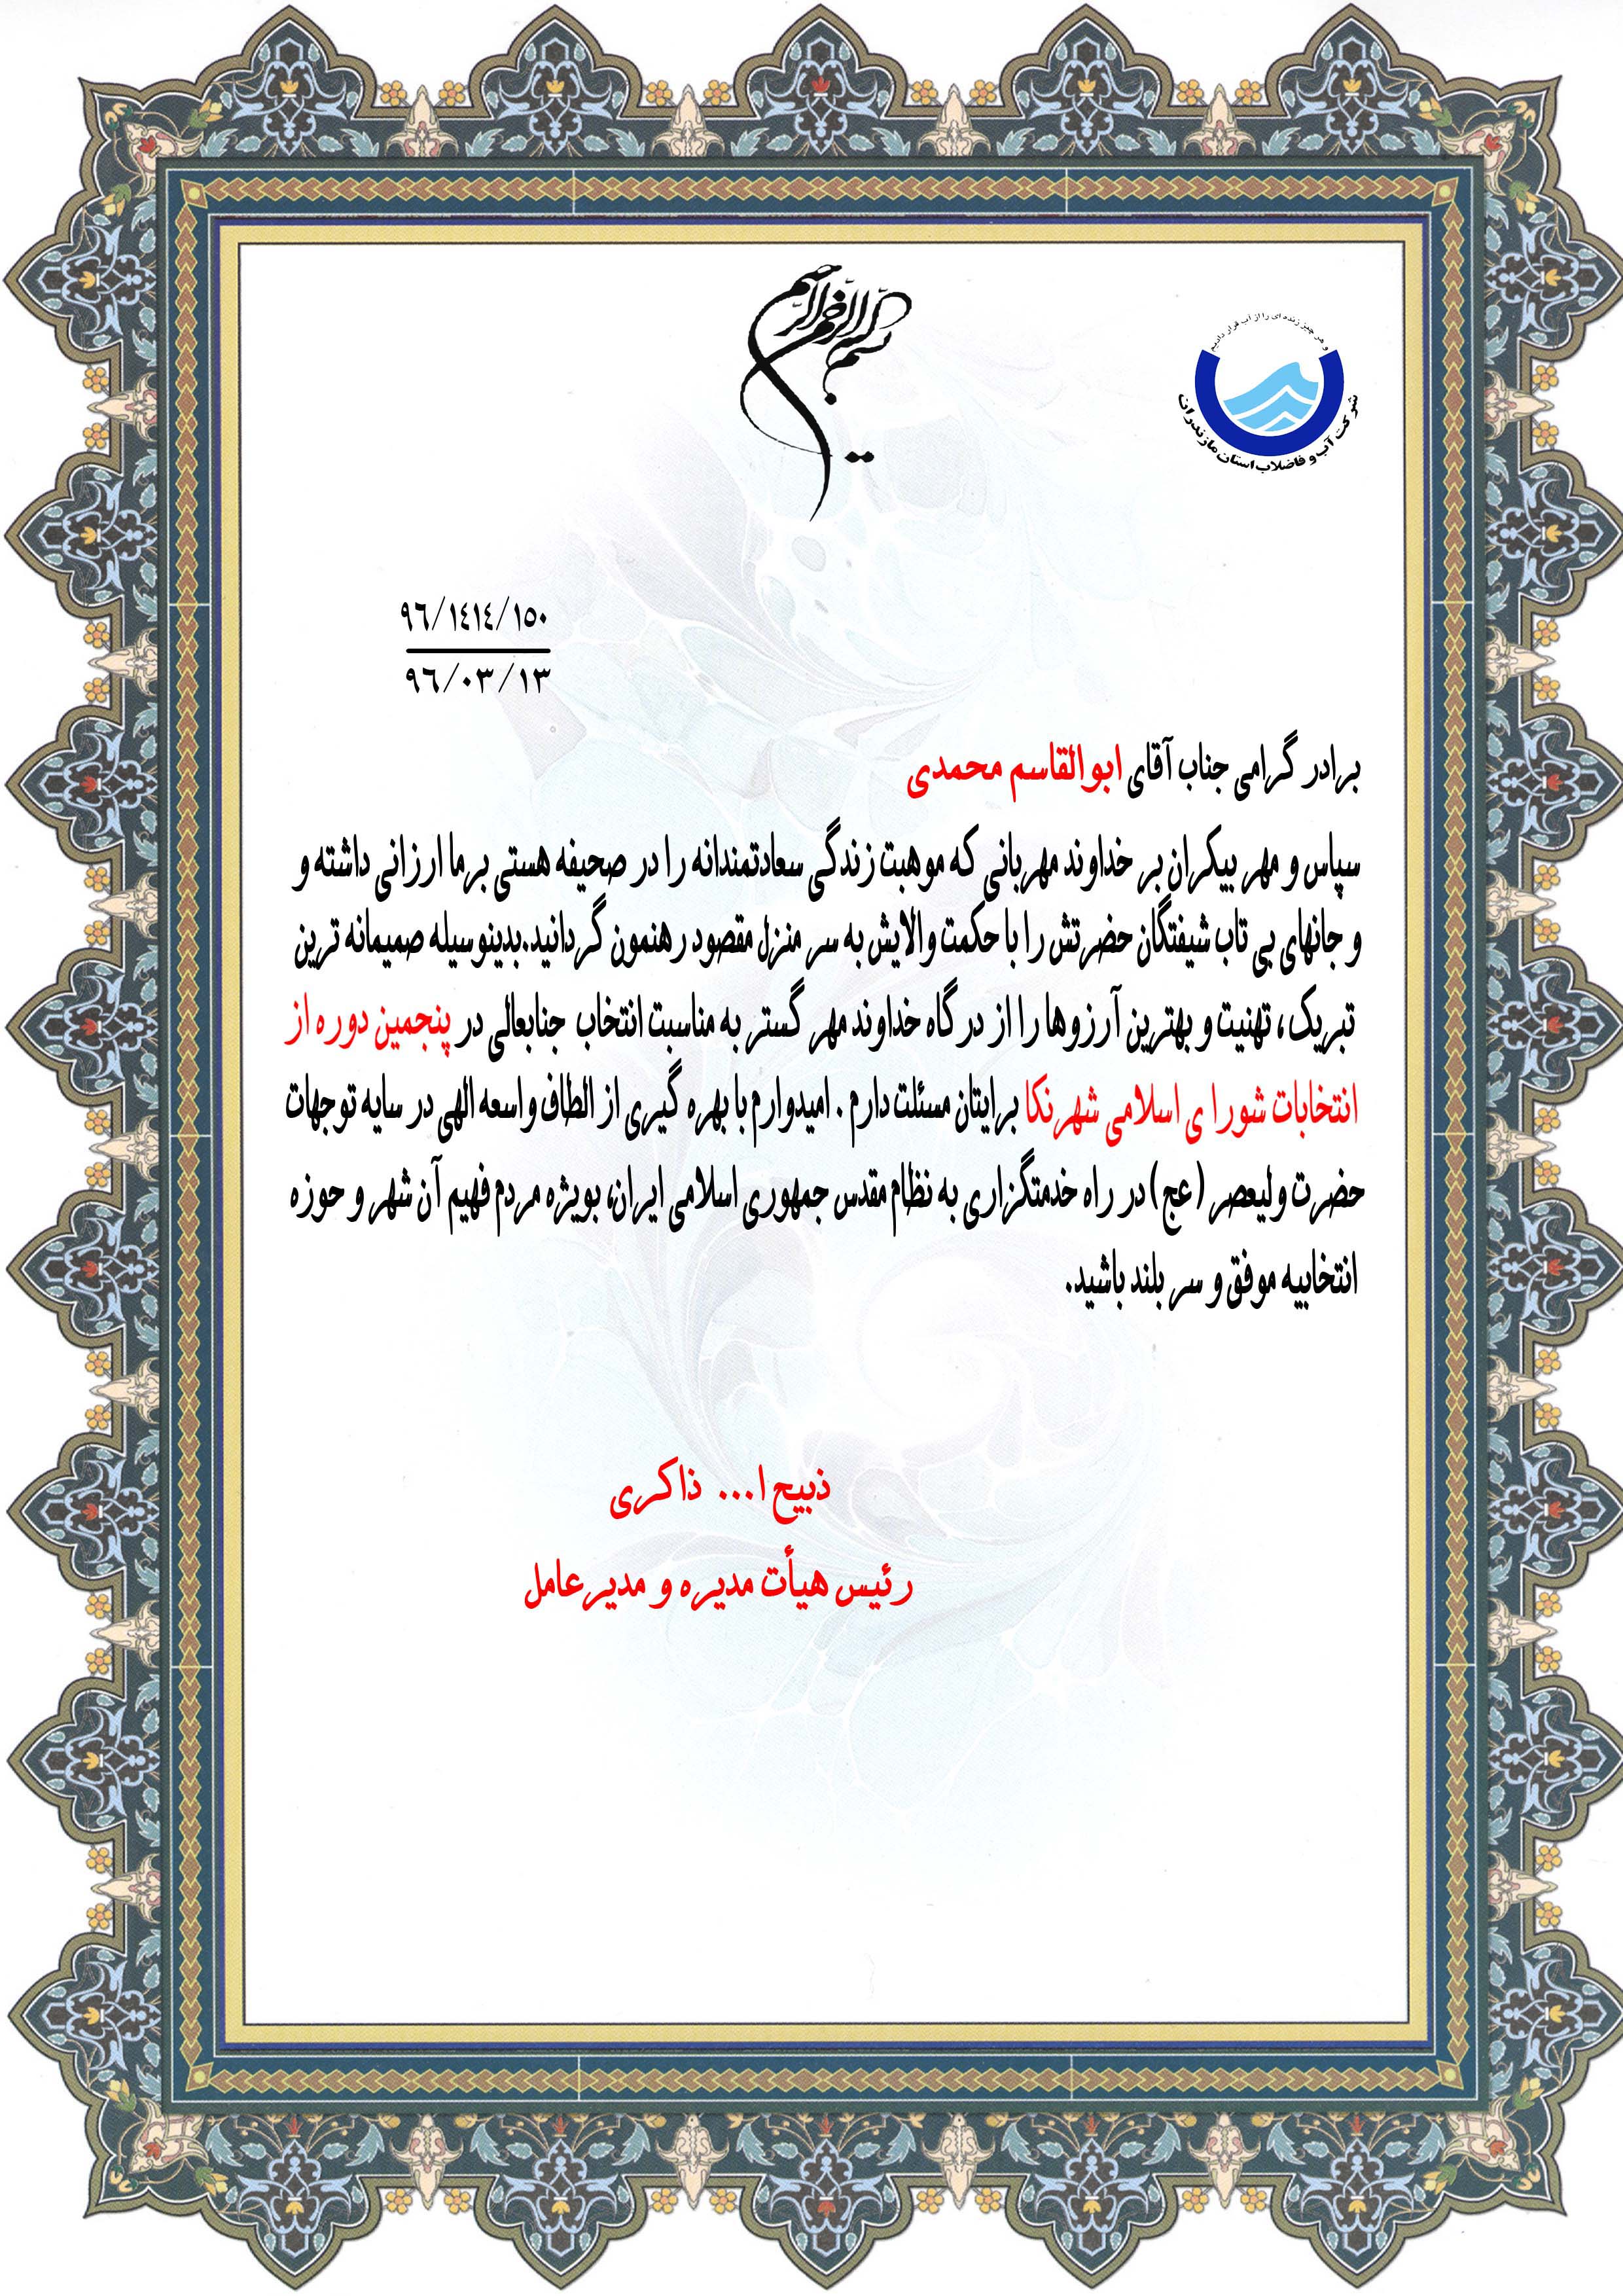 بسم الله الرحمن الرحیم
و هر چیز زنده ای را از آب قرار دادیم
شرکت آب و فاضلاب استان مازندران
۹۶/۱۴۱۴/۱۵۰
۹۶/۰۳/۱۳
برادر گرامی جناب آقای ابوالقاسم محمدی
سپاس و مهر بیکران بر خداوند مهربانی که موهبت زندگی سعادتمندانه را در صحیفه هستی برما ارزانی داشته و
و جانهای بی تاب شیفتگان حضرتش را با حکمت والایش به سر منزل مقصود رهنمون گردانید.بدینوسیله صمیمانه ترین
تبریک ، تهنیت و بهترین آرزوها را از درگاه خداوند مهر گستر به مناسبت انتخاب جنابعالی در پنجمین دوره از
انتخابات شورا ی اسلامی شهرنکا برایتان مسئلت دارم . امیدوارم با بهره گیری از الطاف واسعه الهی در سایه توجهات
حضرت ولیعصر (عج) در راه خدمتگزاری به نظام مقدس جمهوری اسلامی ایران، بویژه مردم فهیم آن شهر و حوزه
انتخابیه موفق و سر بلند باشید.
ذبیح ا... ذاکری
رئیس هیأت مدیره و مدیرعامل